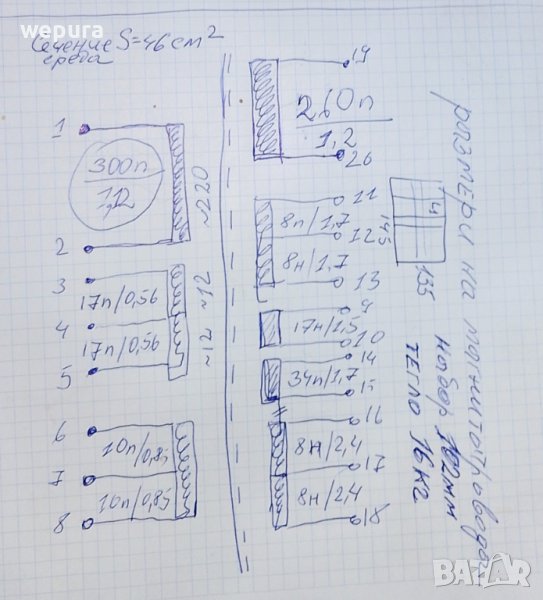 wepura
Сечение S=46cm²
среда
1
300п
1,12
2
~220
3
17п/0,56
~12
4
17п/0,56
~12
5
6
10п/0,85
7
10п/0,85
8
19
260п
1,2
20
11
8п/1,7
12
8н/1,7
13
9
17н/1,5
10
14
34п/1,7
15
16
8н/2,4
17
8н/2,4
18
4
145
135
размери на магнитопровода
набор 102мм
тегло 16кг
BAZAR